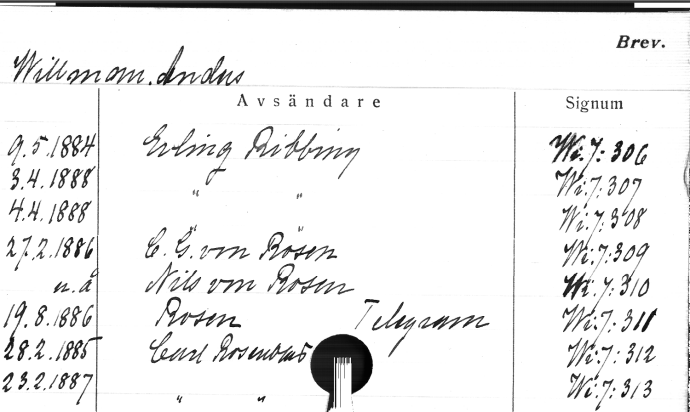 Brev.
Willman, Anders
Avsändare Signum
9.5.1884 Erling Ribbing Wi:7:306
3.4.1888 " " Wi:7:307
4.4.1888 " " Wi:7:308
27.2.1886 C. G. von Rosen Wi:7:309
u.å Nils von Rosen Wi:7:310
19.8.1886 Rosen Telegram Wi:7:311
28.2.1885 Carl Wi:7:312
23.2.1887 " " Wi:7:313